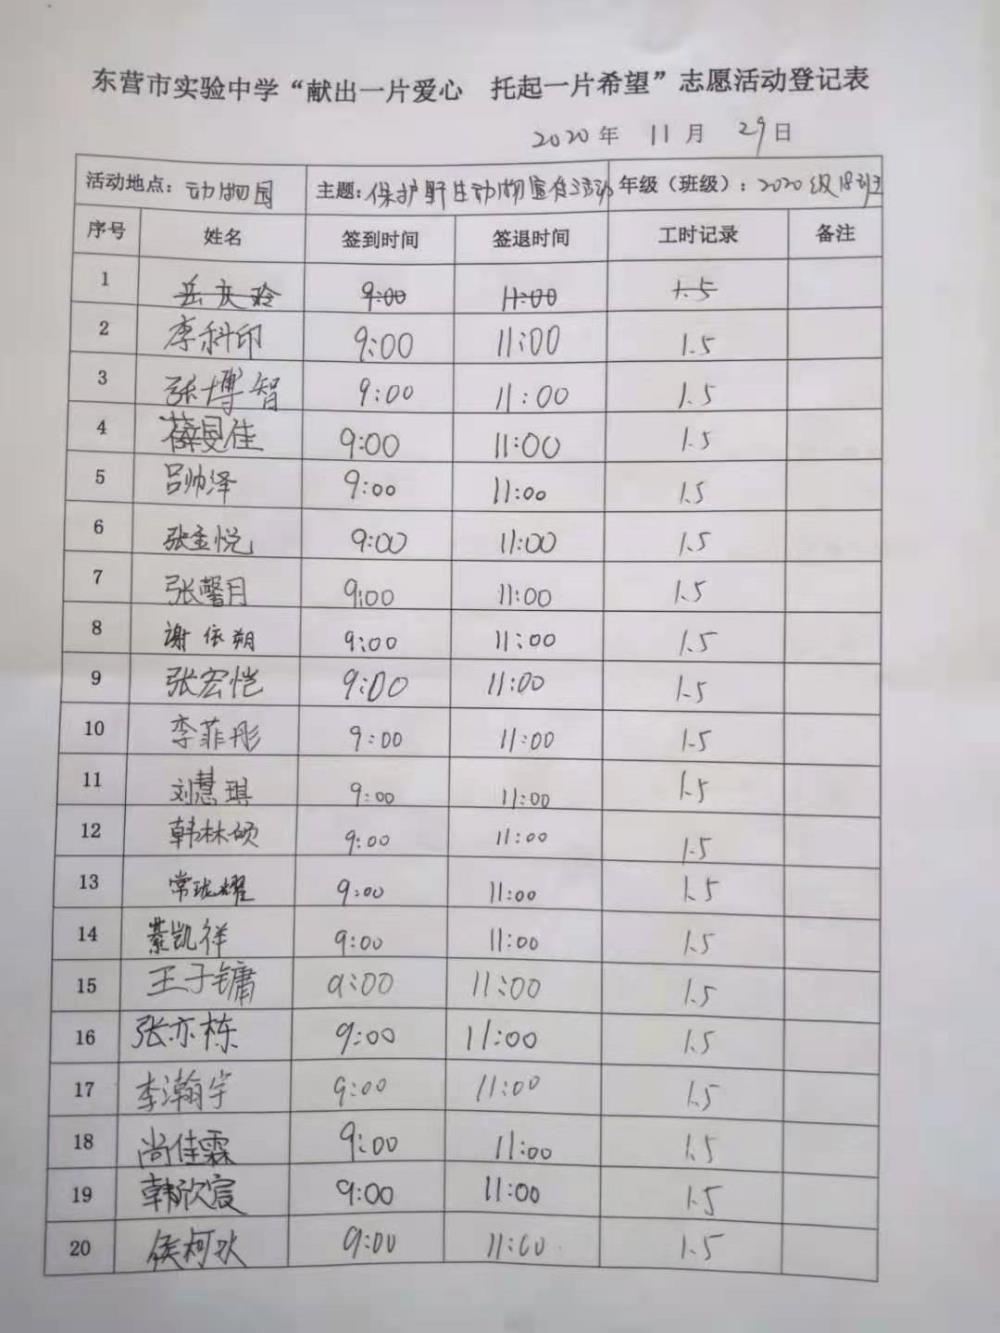 东营市实验中学“献出一片爱心 托起一片希望”志愿活动登记表
2020年 11月 29日
活动地点：动物园 主题：保护野生动物宣传活动 年级（班级）：2020级18班
序号 姓名 签到时间 签退时间 工时记录 备注
1 岳庆玲 9:00 11:00 1.5
2 李科印 9:00 11:00 1.5
3 张博智 9:00 11:00 1.5
4 薛旻佳 9:00 11:00 1.5
5 吕帅泽 9:00 11:00 1.5
6 张金悦 9:00 11:00 1.5
7 张馨月 9:00 11:00 1.5
8 谢依朔 9:00 11:00 1.5
9 张宏恺 9:00 11:00 1.5
10 李菲彤 9:00 11:00 1.5
11 刘慧琪 9:00 11:00 1.5
12 韩林硕 9:00 11:00 1.5
13 常珑耀 9:00 11:00 1.5
14 綦凯祥 9:00 11:00 1.5
15 王子镛 9:00 11:00 1.5
16 张亦栋 9:00 11:00 1.5
17 李瀚宇 9:00 11:00 1.5
18 尚佳霖 9:00 11:00 1.5
19 韩欣宸 9:00 11:00 1.5
20 侯柯 9:00 11:00 1.5